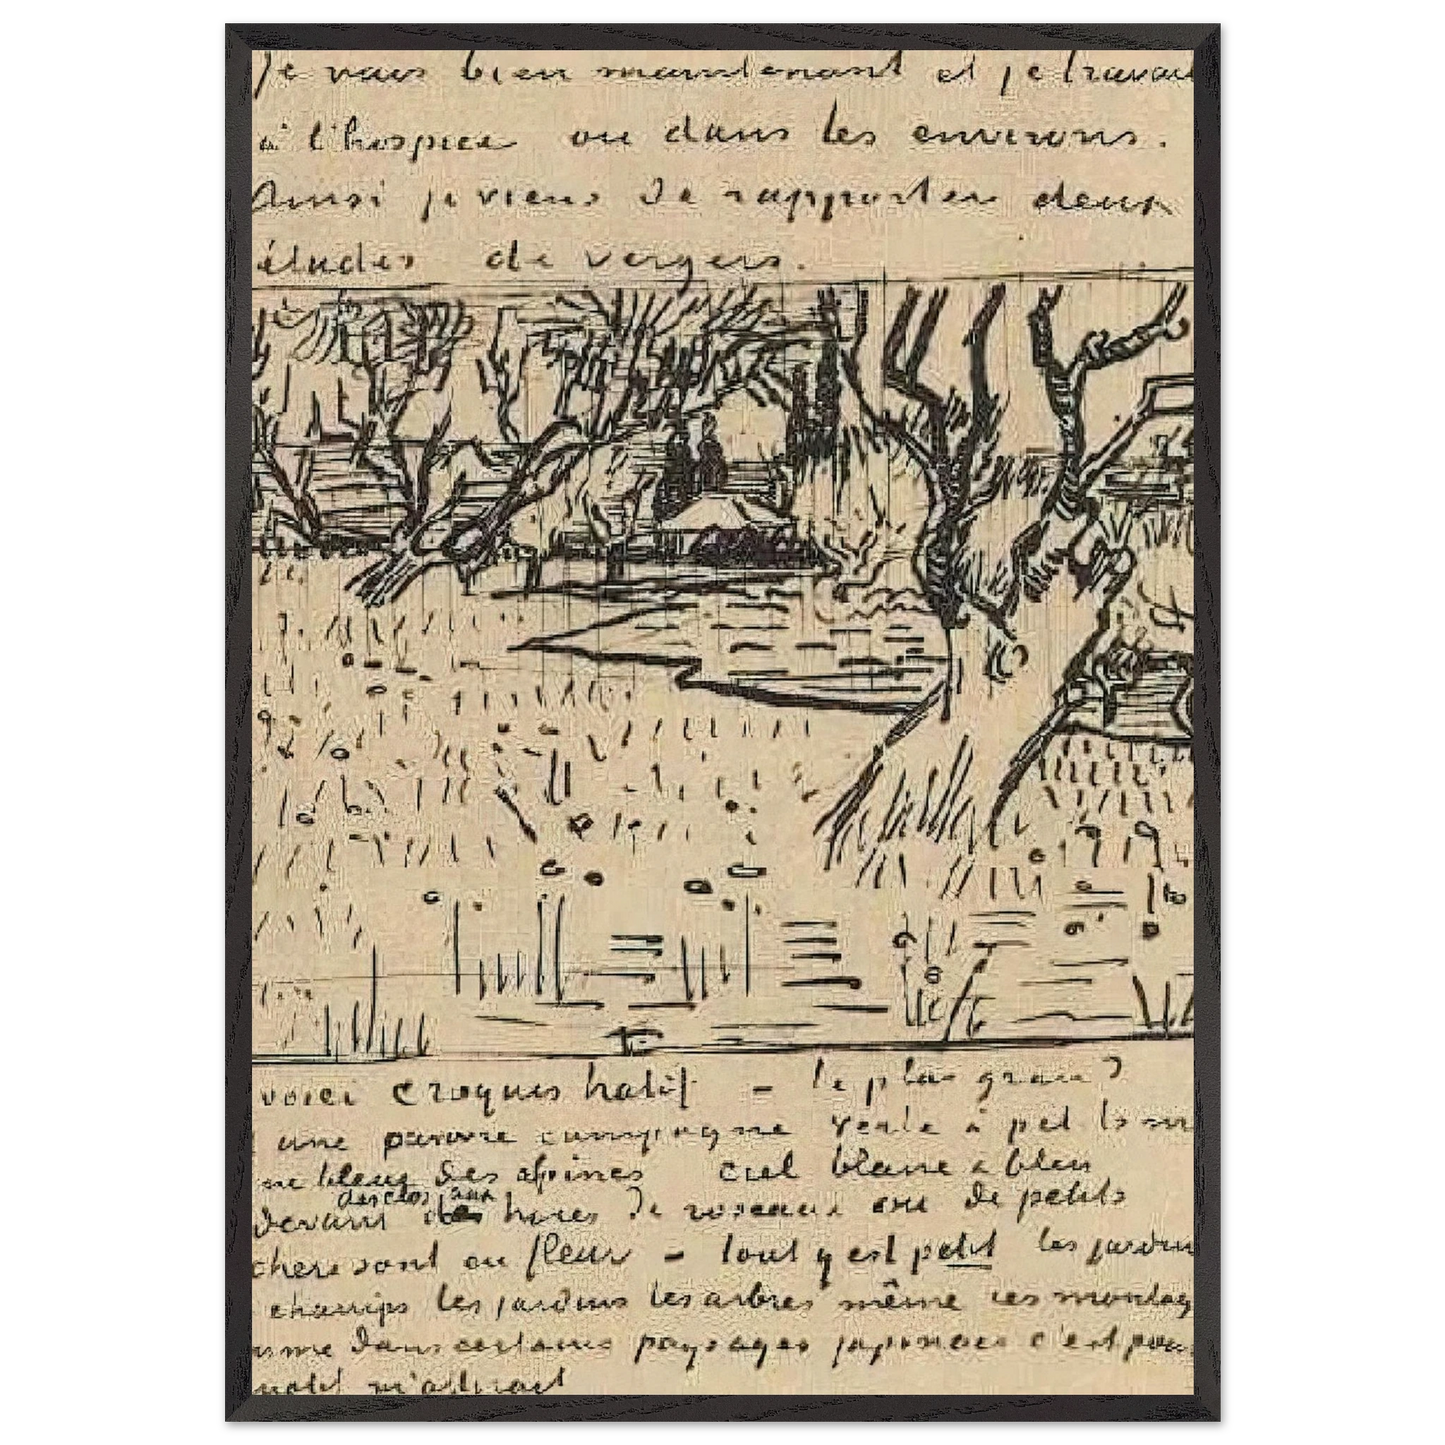 Je vais bien maintenant et je travai
à l'hospice ou dans les environs.
Ainsi je viens de rapporter deux
études de vergers.
voici croquis hatif – le plus grand
une pauvre campagne verte à pet
ne bleus des alpines ciel blanc & bleu
des clos
devant haies de roseaux ou de petits
cherisont en fleur – tout y est petit les jardins
champs les jardins les arbres même ces montag
mme dans certains paysages japonais c'est pour
motif m'attirait